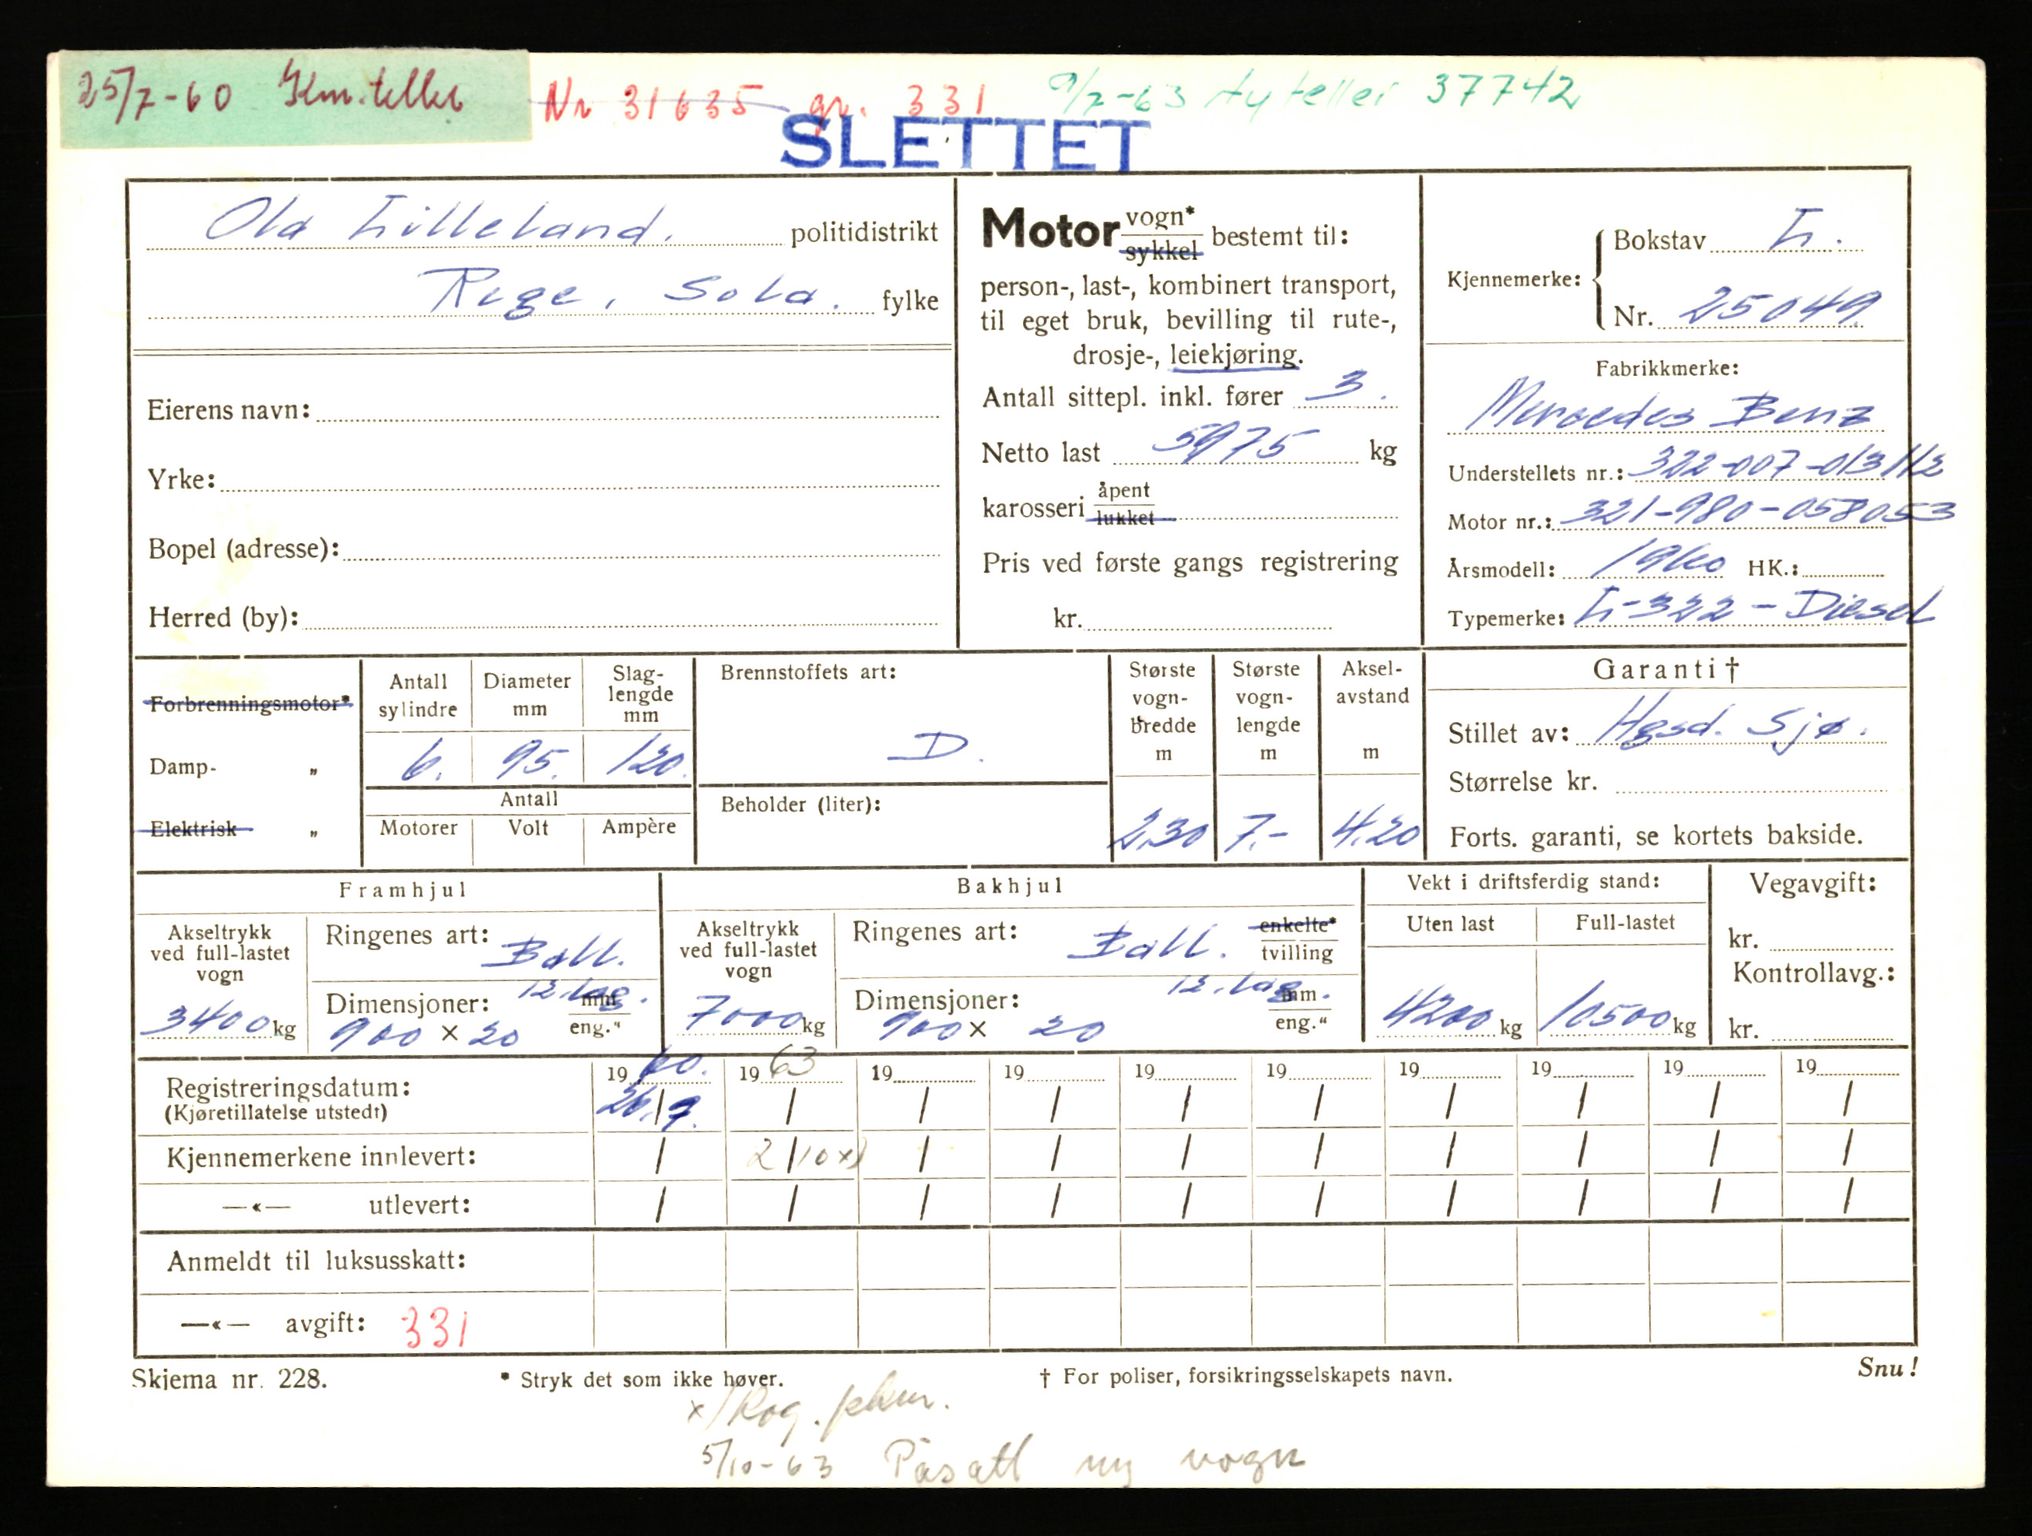 25/7-60 Km.teller Nr 31635 gr. 331 9/7-63 Ny teller 37742
SLETTET
Ola Lilleland. politidistrikt
Rege, Sola. fylke
Eierens navn:
Yrke:
Bopel (adresse):
Herred (by):
Motor vogn* sykkel bestemt til:
person-, last-, kombinert transport,
til eget bruk, bevilling til rute-,
drosje-, leiekjøring.
Antall sittepl. inkl. fører 3.
Netto last 5975 kg
karosseri åpent lukket
Pris ved første gangs registrering
kr.
Kjennemerke: Bokstav L.
Nr. 25049
Fabrikkmerke:
Mercedes Benz
Understellets nr.: 322-007-013112
Motor nr.: 321-980-058053
Årsmodell: 1960 HK.:
Typemerke: L-322-Diesel
Forbrenningsmotor*
Damp- „
Elektrisk „
Antall sylindre
6.
Diameter mm
95.
Slag-lengde mm
120.
Antall
Motorer Volt Ampère
Brennstoffets art:
D.
Beholder (liter):
Største vogn-bredde m
2.30
Største vogn-lengde m
7.-
Aksel-avstand m
4.20
Garanti †
Stillet av: Hgsd. Sjø.
Størrelse kr.
Forts. garanti, se kortets bakside.
Framhjul
Akseltrykk ved full-lastet vogn
3400 kg
Ringenes art: Ball.
Dimensjoner: 12.lag. mm
900 × 20 eng."
Bakhjul
Akseltrykk ved full-lastet vogn
7000 kg
Ringenes art: Ball. enkelte* tvilling
Dimensjoner: 12.lag. mm
900 × 20 eng."
Vekt i driftsferdig stand:
Uten last Full-lastet
4200 kg 10500 kg
Vegavgift:
kr.
Kontrollavg.:
kr.
Registreringsdatum: 19 60. 19 63 19 19 19 19 19 19 19 19
(Kjøretillatelse utstedt) 26/7. / / / / / / / / /
Kjennemerkene innlevert: / 2/10 x) / / / / / / / /
—«— utlevert: / / / / / / / / / /
Anmeldt til luksusskatt:
—«— avgift: 331
Skjema nr. 228. * Stryk det som ikke høver. † For poliser, forsikringsselskapets navn. Snu!
x/ Rog.
5/10-63 Påsatt ny vogn